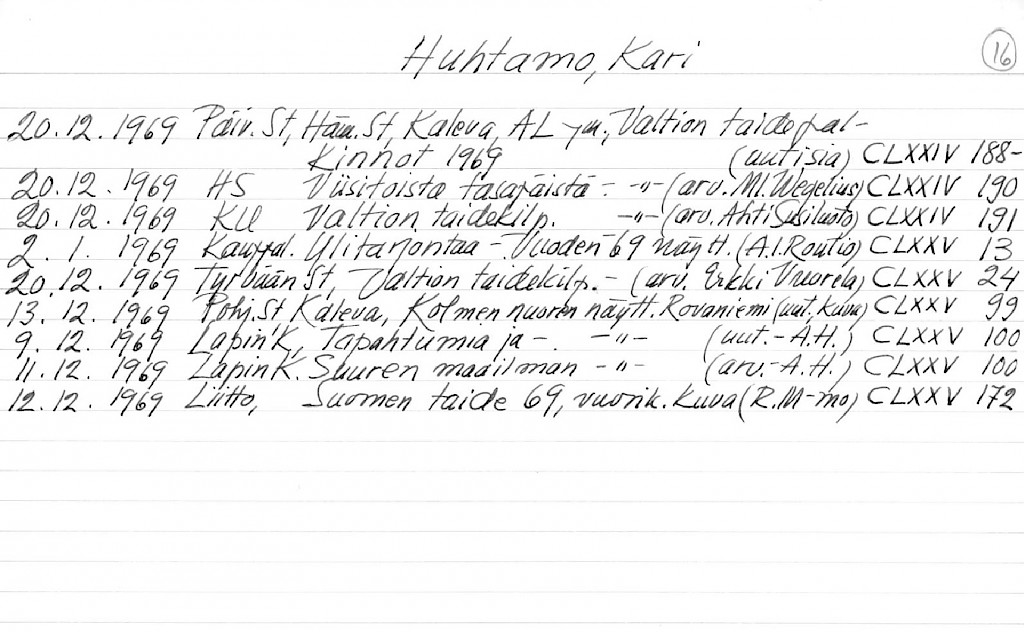 Huhtamo, Kari
16
20.12.1969 Päiv. St, Häm. St, Kaleva, AL ym., Valtion taidepal-
kinnot 1969 (uutisia) CLXXIV 188-
20.12.1969 HS Viisitoista tasapäistä - -"- (arv. Ml. Wegelius) CLXXIV 190
20.12.1969 KU Valtion taidekilp. -"- (arv. Ahti Susiluoto) CLXXIV 191
2.1.1969 Kauppal. Ylitarjontaa - Vuoden -69 näytt. (A.I. Routio) CLXXV 13
20.12.1969 Tyrvään St, Valtion taidekilp. - (arv. Erkki Vuorela) CLXXV 24
13.12.1969 Pohj. St Kaleva, Kolmen nuoren näytt. Rovaniemi (uut. kuva) CLXXV 99
9.12.1969 Lapin K, Tapahtumia ja -. -"- (uut. - A.H.) CLXXV 100
11.12.1969 Lapin K. Suuren maailman -"- (arv. - A.H.) CLXXV 100
12.12.1969 Liitto, Suomen taide 69, vuosik. kuva (R.M-mo) CLXXV 172